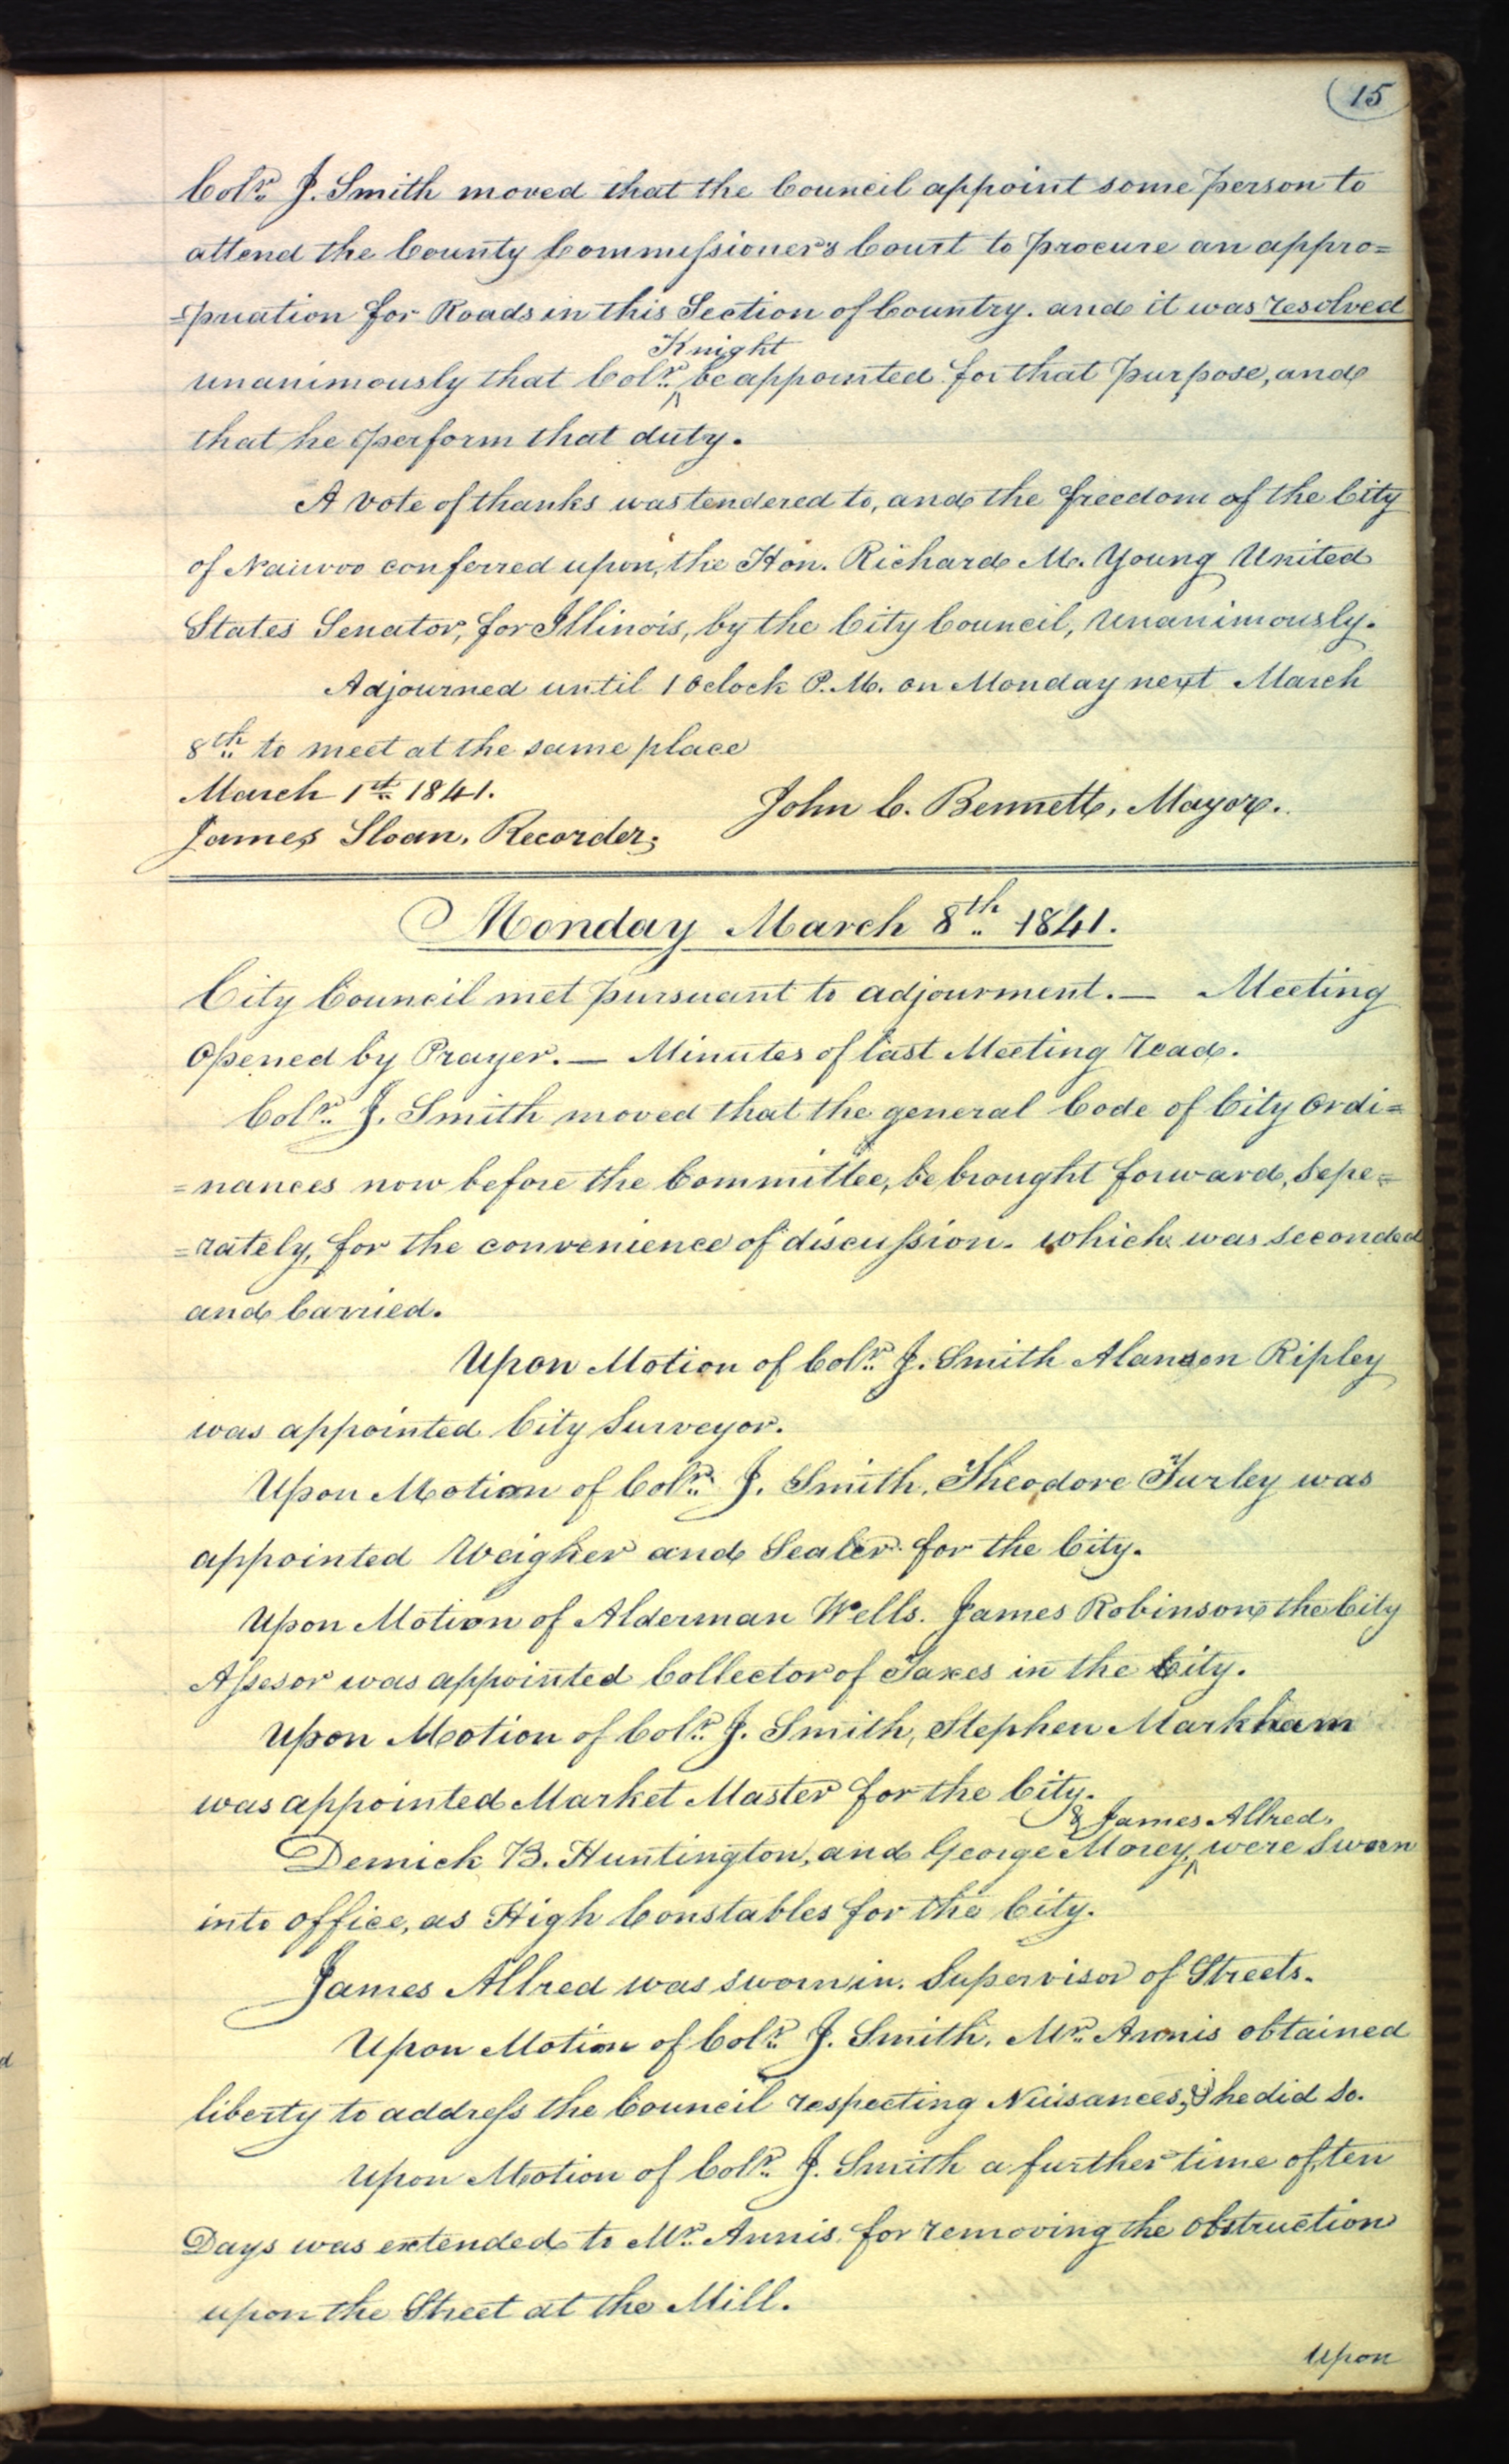 15
Colr. J. Smith moved that the Council appoint some person to
attend the County Commissioner's Court to procure an appro=
=priation for Roads in this Section of Country. and it was resolved
Knight
unanimously that Colr. ^ be appointed for that purpose, and
that he perform that duty.
A vote of thanks was tendered to, and the freedom of the City
of Nauvoo conferred upon, the Hon. Richard M. Young United
States Senator, for Illinois, by the City Council, unanimously.
Adjourned until 1 Oclock P.M. on Monday next March
8th to meet at the same place
March 1st 1841.
John C. Bennett, Mayor.
James Sloan, Recorder.
Monday March 8th 1841.
City Council met pursuant to adjourment. — Meeting
Opened by Prayer. — Minutes of last Meeting read.
Colr. J. Smith moved that the general Code of City Ordi=
=nances now before the Committee, be brought forward, Sepe=
=rately, for the convenience of discussion. which was seconded
and Carried.
Upon Motion of Colr. J. Smith Alanson Ripley
was appointed City Surveyor.
Upon Motion of Colr. J. Smith, Theodore Turley was
appointed Weigher and Sealer for the City.
Upon Motion of Alderman Wells. James Robinson the City
Assesor was appointed Collector of Taxes in the City.
Upon Motion of Colr. J. Smith, Stephen Markham
was appointed Market Master for the City.
& James Allred,
Demick B. Huntington, and George Morey, ^ were Sworn
into office, as High Constables for the City.
James Allred was sworn in. Supervisor of Streets.
Upon Motion of Colr. J. Smith, Mr. Annis obtained
liberty to address the Council respecting Nuisances, & he did so.
Upon Motion of Colr. J. Smith a further time of ten
Days was extended to Mr. Annis for removing the obstruction
upon the Street at the Mill.
Upon